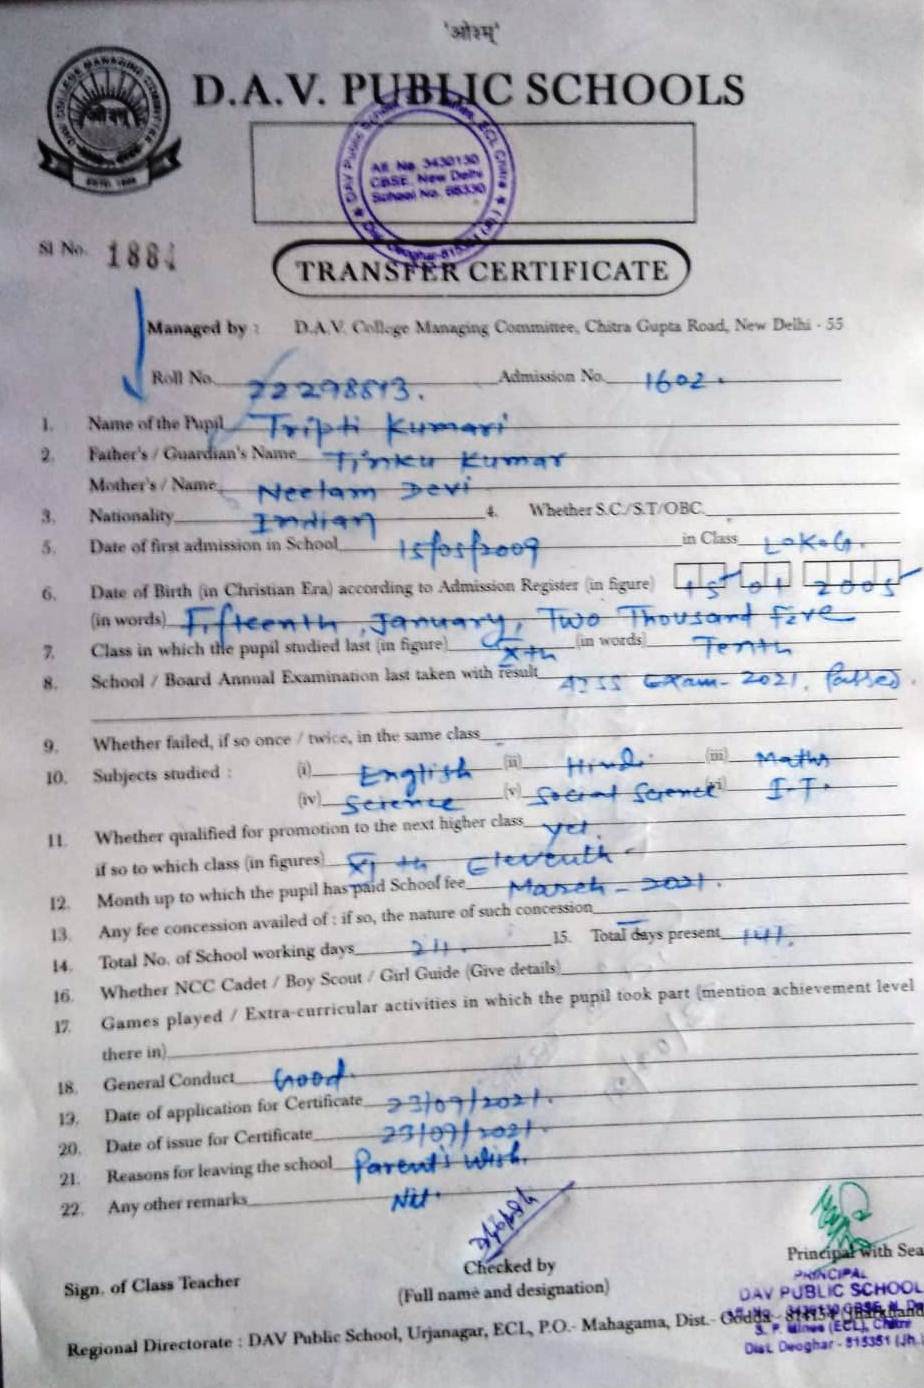 'ओ३म्'
D.A.V. PUBLIC SCHOOLS
DAV Public School
Aff. No. 3430130
CBSE, New Delhi
School No. 66330
Sl No. 1884
TRANSFER CERTIFICATE
Managed by : D.A.V. College Managing Committee, Chitra Gupta Road, New Delhi - 55
Roll No. 22298813. Admission No. 1602.
1. Name of the Pupil Tripti Kumari
2. Father's / Guardian's Name Tinku Kumar
Mother's / Name Neelam Devi
3. Nationality Indian 4. Whether S.C./S.T/OBC.
5. Date of first admission in School 15/05/2009 in Class L.K.G.
6. Date of Birth (in Christian Era) according to Admission Register (in figure) 15 01 2005
(in words) Fifteenth, January, Two Thousand Five
7. Class in which the pupil studied last (in figure) Xth (in words) Tenth
8. School / Board Annual Examination last taken with result AISS Exam - 2021, Passed.
9. Whether failed, if so once / twice, in the same class
10. Subjects studied : (i) English (ii) Hindi (iii) Maths
(iv) Science (v) Social Science (vi) I.T.
11. Whether qualified for promotion to the next higher class yes.
if so to which class (in figures) XI th Eleventh
12. Month up to which the pupil has paid School fee March - 2021.
13. Any fee concession availed of : if so, the nature of such concession
14. Total No. of School working days 211. 15. Total days present 141.
16. Whether NCC Cadet / Boy Scout / Girl Guide (Give details)
17. Games played / Extra-curricular activities in which the pupil took part (mention achievement level
there in)
18. General Conduct Good.
19. Date of application for Certificate 23/07/2021.
20. Date of issue for Certificate 23/07/2021.
21. Reasons for leaving the school Parent's Wish.
22. Any other remarks Nil.
Sign. of Class Teacher
Checked by
(Full name and designation)
Principal with Sea
PRINCIPAL
DAV PUBLIC SCHOOL
S. P. Mines (ECL), Chitra
Dist. Deoghar - 815351 (Jh.)
Regional Directorate : DAV Public School, Urjanagar, ECL, P.O.- Mahagama, Dist.- Godda - 814154 (Jharkhand